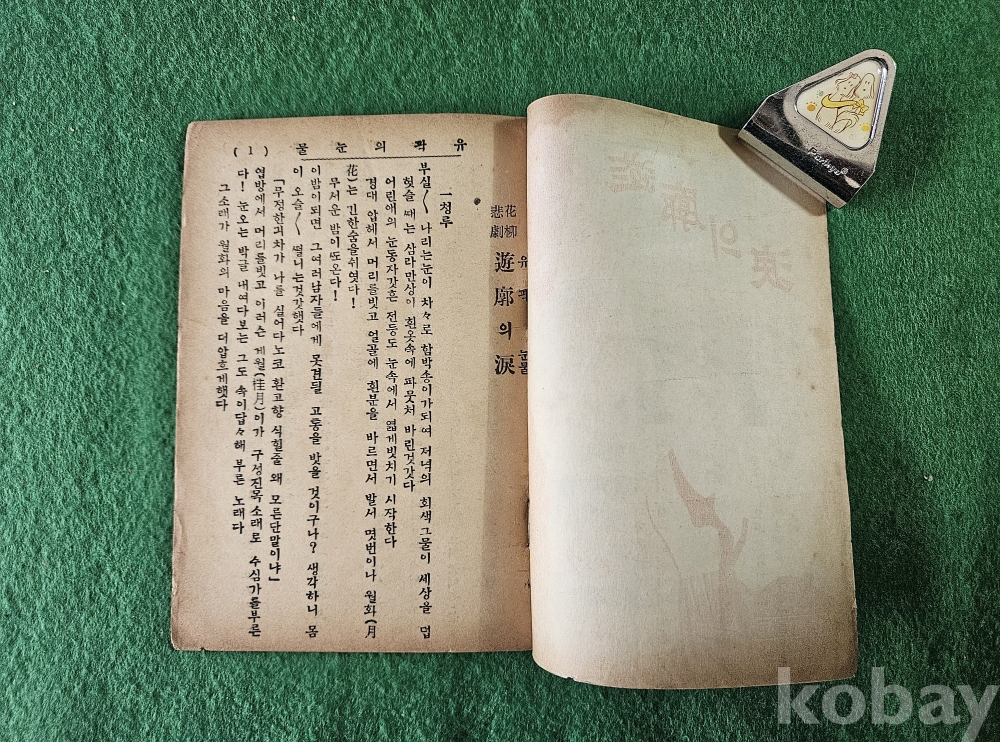 유곽의눈물 (1)
花柳悲劇 遊廓의淚
유곽 눈물
一 청루
부실〱 나리는눈이 차々로 함박송이가되여 저녁의 회색그물이 세상을 덥
헛슬 때는 삼라만상이 흰옷속에 파뭇처 바린것갓다
어린애의 눈동자갓흔 전등도 눈속에서 엷게빗치기 시작한다
경대 압헤서 머리를빗고 얼골에 흰분을 바르면서 발서 몃번이나 월화(月
花)는 긴한숨을쉬엿다!
무서운 밤이 또온다!
이밤이되면 그여러남자들에게 못견될 고통을 밧을 것이구나? 생각하니 몸
이 오슬〱 떨니는것갓햇다
「무정한긔차가 나를 실어다노코 환고향 식힐줄 왜 모른단말이냐」
엽방에서 머리를빗고 이러슨 계월(桂月)이가 구성진목소래로 수심가를부른
다! 눈오는 박글 내여다보는 그도 속이답々해 부른 노래다
그소래가 월화의 마음을 더압흐게햇다
遊廓의淚
kobay